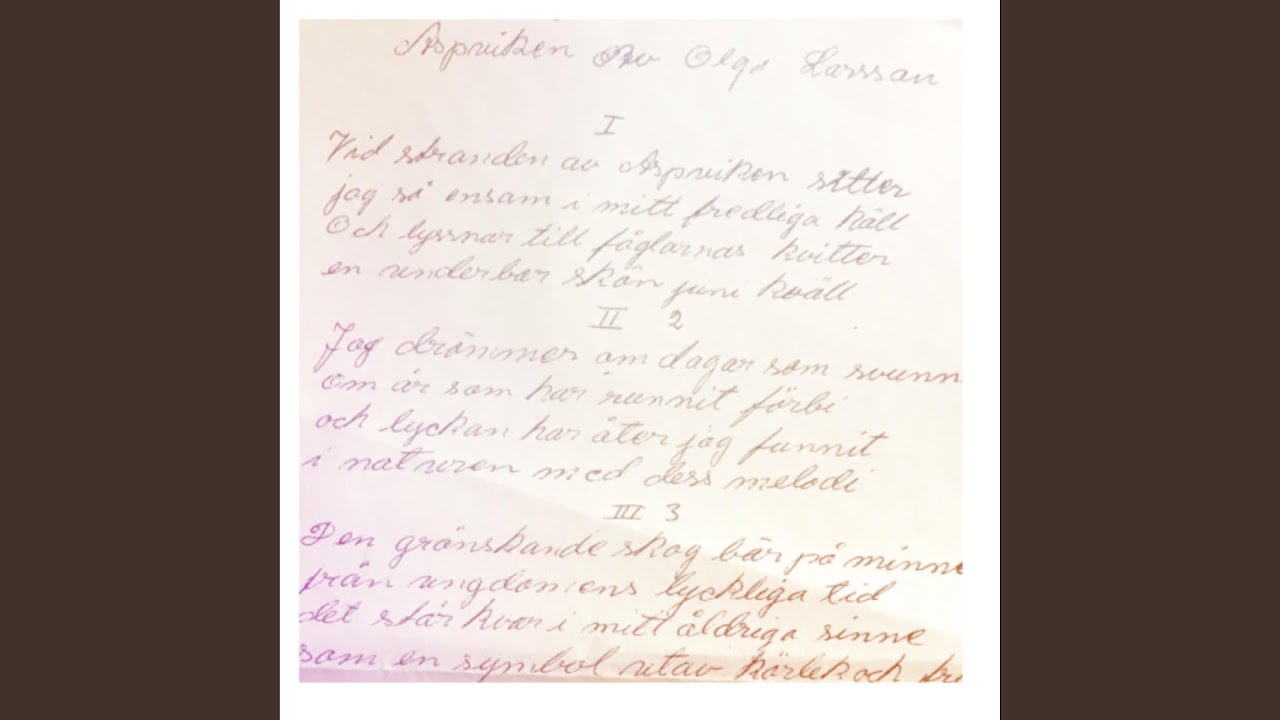 Aspviken Av Olga Larsson
I
Vid stranden av Aspviken sitter
jag så ensam i mitt fredliga käll
Och lyssnar till fåglarnas kvitter
en underbar skön juni kväll
II 2
Jag drömmer om dagar som svunn
om år som har runnit förbi
och lyckan har åter jag funnit
i naturen med dess melodi
III 3
Den grönskande skog bär på minne
från ungdomens lyckliga tid
det står kvar i mitt åldriga sinne
som en symbol utav kärlek och